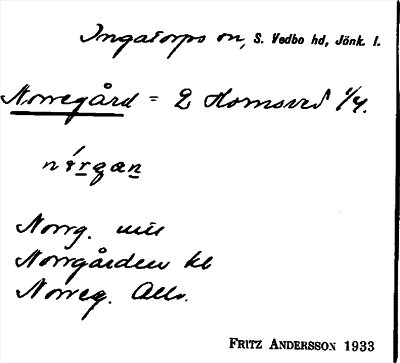 Ingatorps sn, S. Vedbo hd, Jönk. l.
Norregård = 2 Hornsved 1/4.
nɑ́rgan
Norrg. mtl
Norrgården kb
Norreg. Allv.
FRITZ ANDERSSON 1933